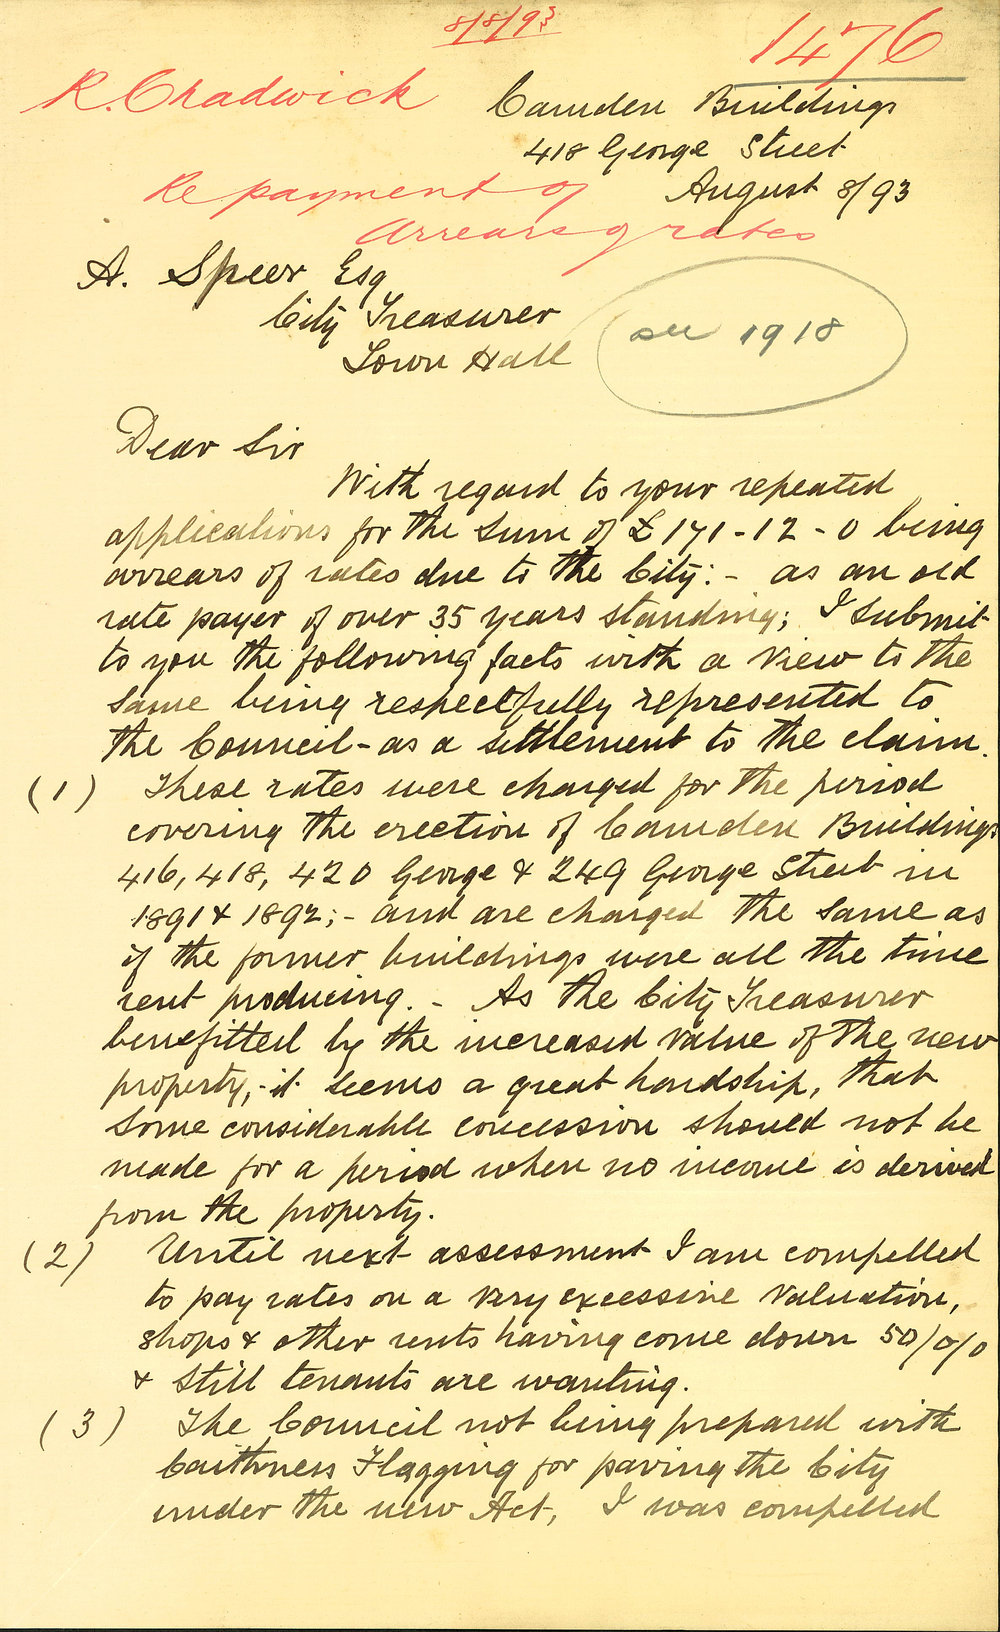 8/8/93
1476
R. Chadwick
Camden Buildings
418 George Street
August 8/93
Re payment of
arrears of rates
A. Speer Esq
City Treasurer
Town Hall
see 1918
Dear Sir
With regard to your repeated
applications for the Sum of £171-12-0 being
arrears of rates due to the City:- as an old
rate payer of over 35 years standing; I submit
to you the following facts with a view to the
same being respectfully represented to
the Council-as a settlement to the claim.
(1) These rates were charged for the period
covering the erection of Camden Buildings
416, 418, 420 George & 249 George Street in
1891 & 1892;- and are charged the same as
if the former buildings were all the time
rent producing. - As the City Treasurer
benefitted by the increased value of the new
property,- it seems a great hardship, that
some considerable concession should not be
made for a period when no income is derived
from the property.
(2) Until next assessment I am compelled
to pay rates on a very excessive valuation,
shops & other rents having come down 50/0/0
& still tenants are wanting.
(3) The Council not being prepared with
Caithness Flagging for paving the City
under the new Act, I was compelled